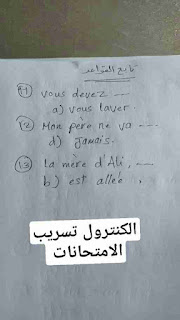 تابع القواعد
(11) vous devez ---
a) vous laver.
(12) Mon père ne va ---
d) Jamais.
(13) La mère d'Ali, ---
b) est allée.
الكنترول تسريب
الامتحانات